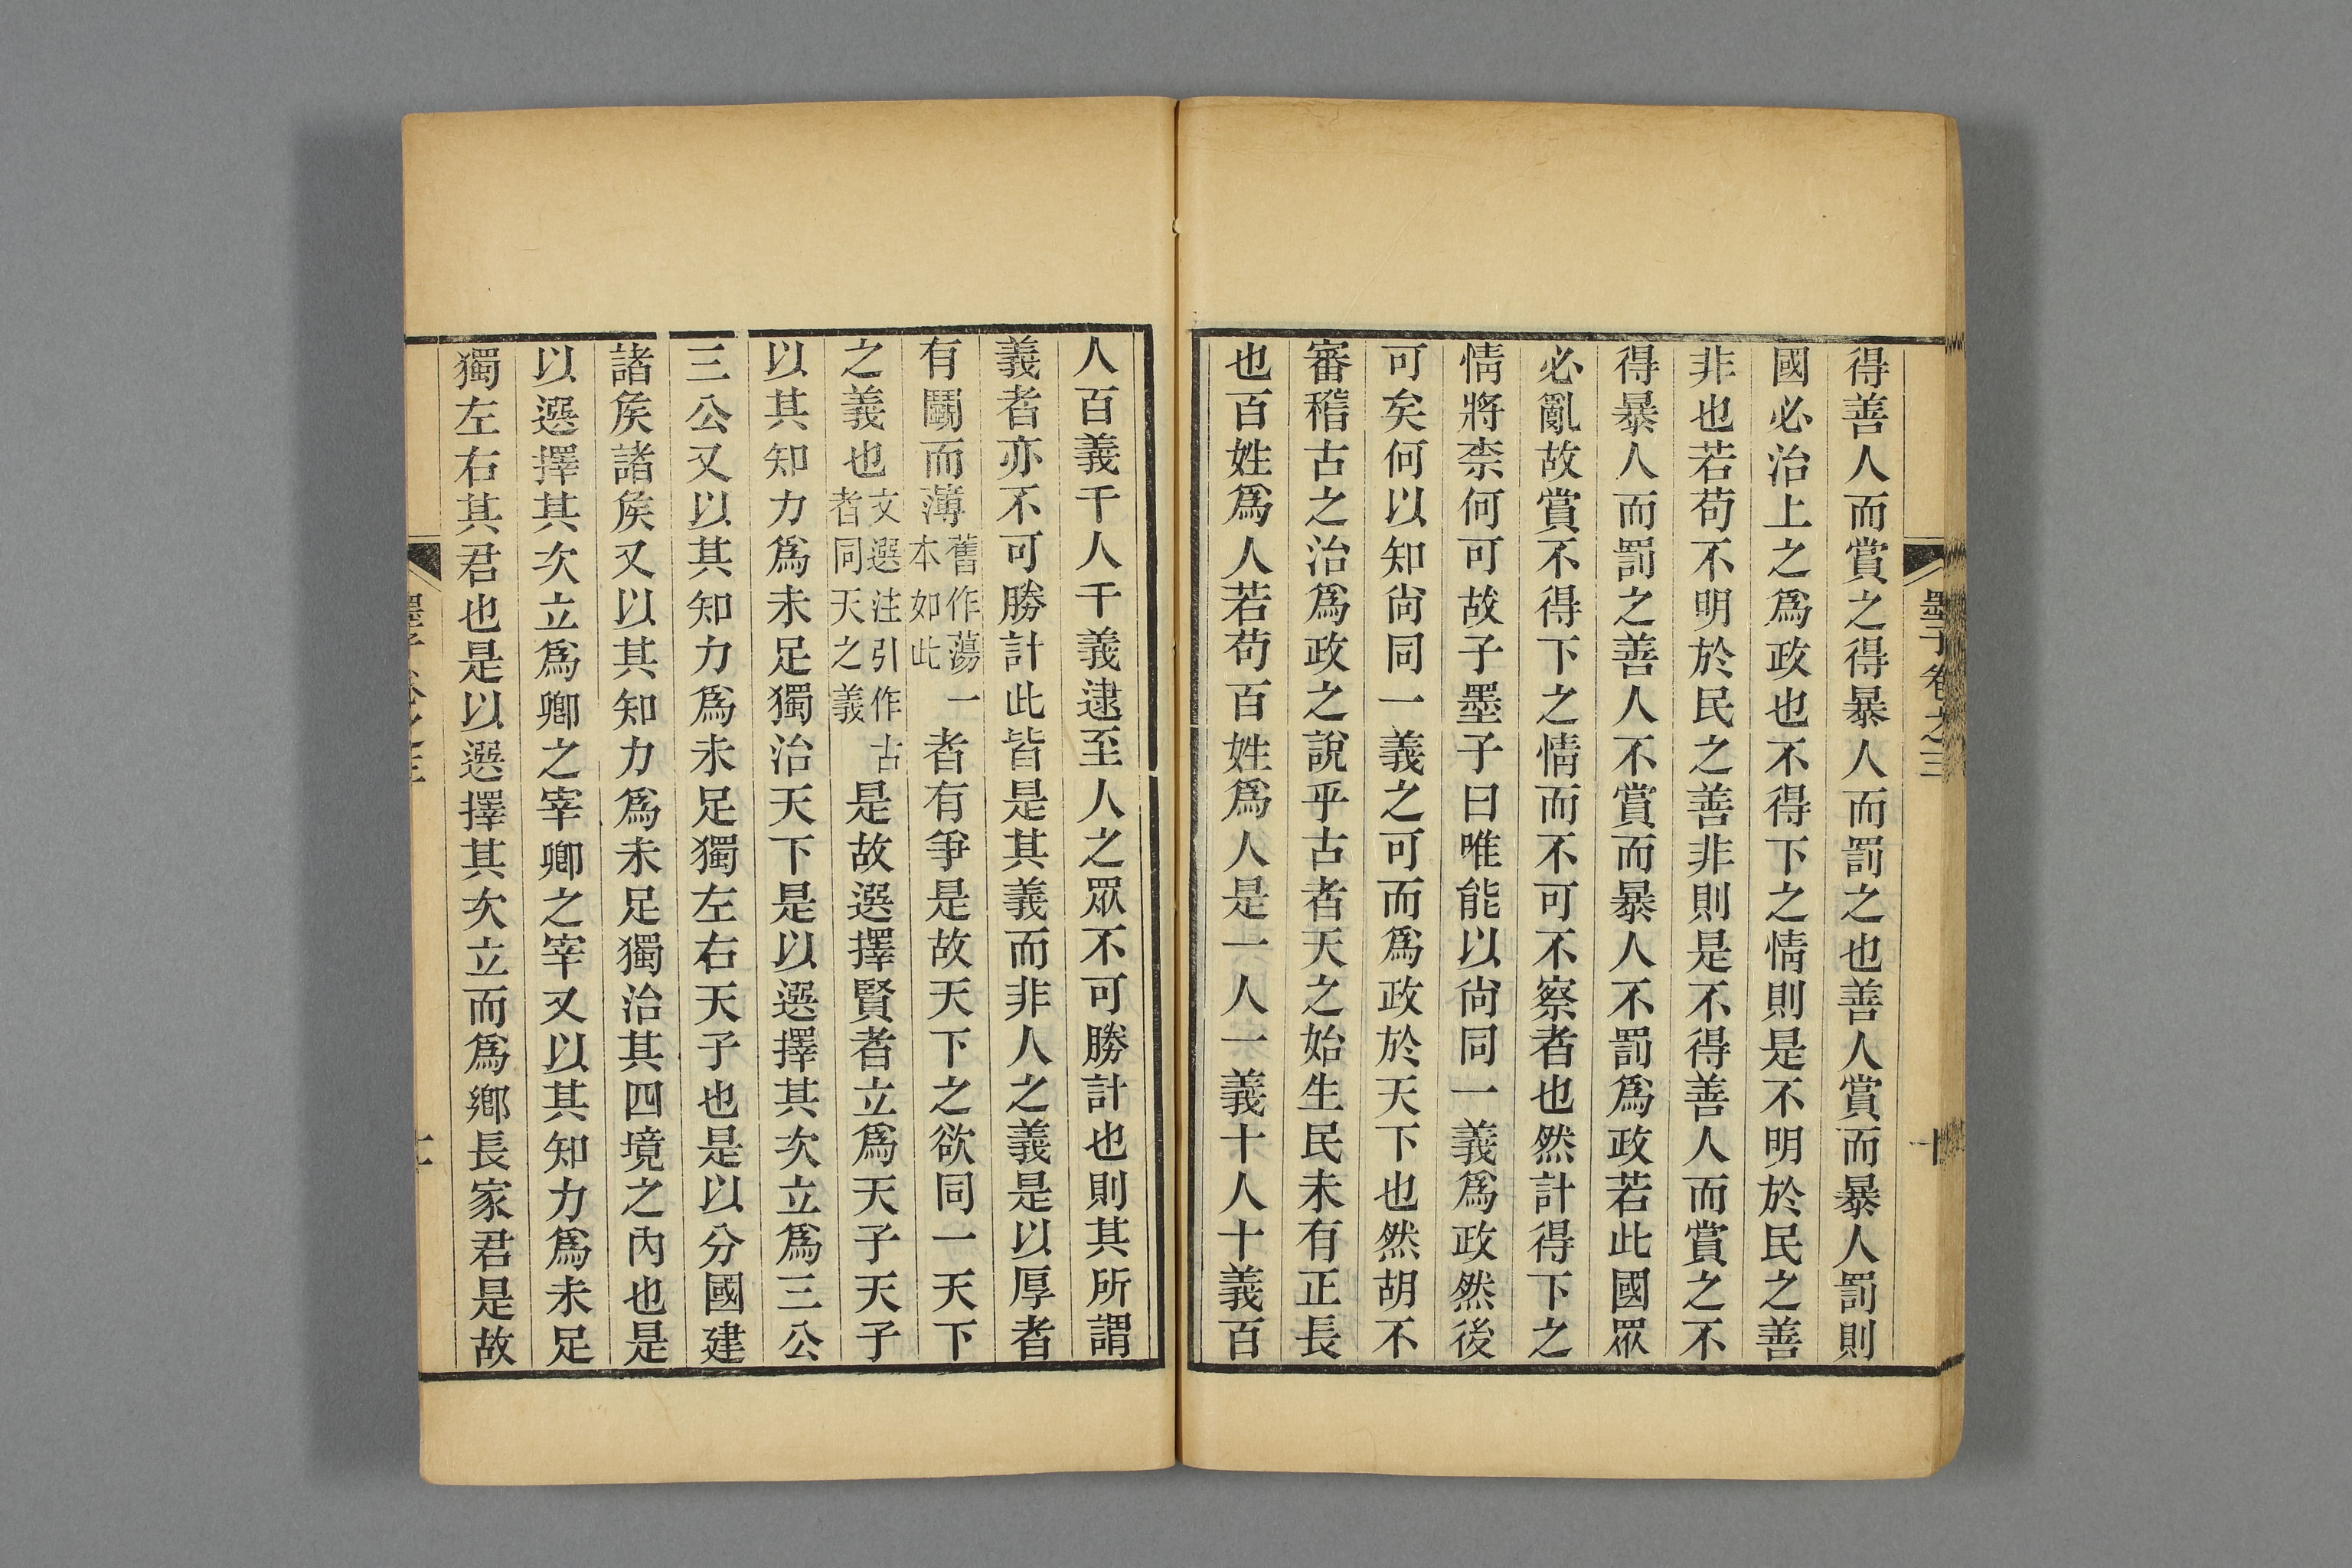 墨子卷之三
十
得善人而賞之得暴人而罰之也善人賞而暴人罰則
國必治上之爲政也不得下之情則是不明於民之善
非也若苟不明於民之善非則是不得善人而賞之不
得暴人而罰之善人不賞而暴人不罰爲政若此國眾
必亂故賞不得下之情而不可不察者也然計得下之
情將柰何可故子墨子曰唯能以尙同一義爲政然後
可矣何以知尙同一義之可而爲政於天下也然胡不
審稽古之治爲政之說乎古者天之始生民未有正長
也百姓爲人若苟百姓爲人是一人一義十人十義百
人百義千人千義逮至人之眾不可勝計也則其所謂
義者亦不可勝計此皆是其義而非人之義是以厚者
有鬭而薄舊作蕩一本如此者有爭是故天下之欲同一天下
之義也文選注引作古者同天之義是故選擇賢者立爲天子天子
以其知力爲未足獨治天下是以選擇其次立爲三公
三公又以其知力爲未足獨左右天子也是以分國建
諸矦諸矦又以其知力爲未足獨治其四境之內也是
以選擇其次立爲卿之宰卿之宰又以其知力爲未足
獨左右其君也是以選擇其次立而爲鄉長家君是故